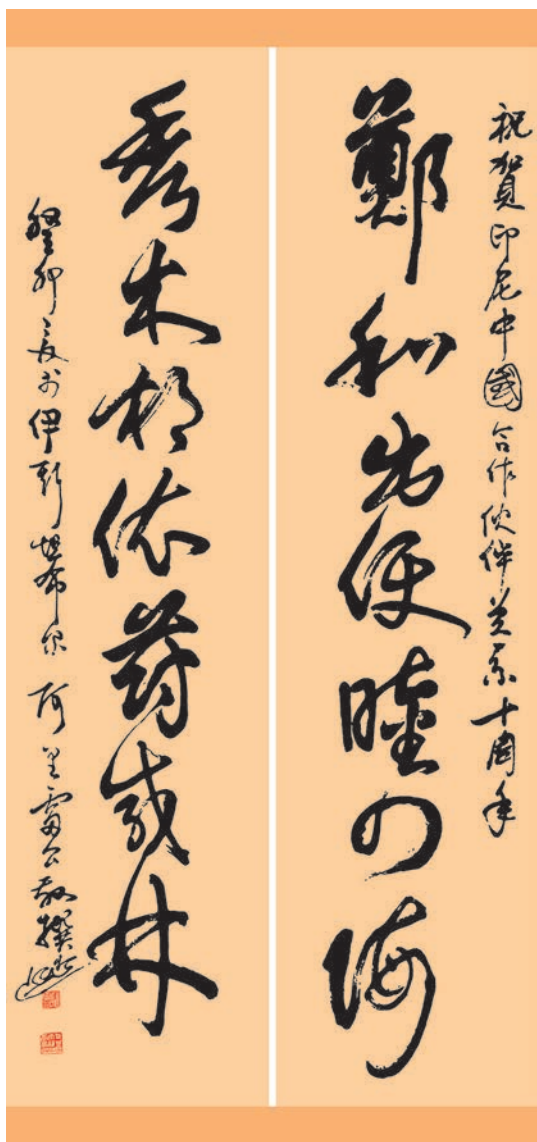 祝賀印尼中國合作伙伴关系十周年
鄭和出使睦四海
秀木相依蔚成林
癸卯夏於伊斯坦布尔 阿里雷公敬撰